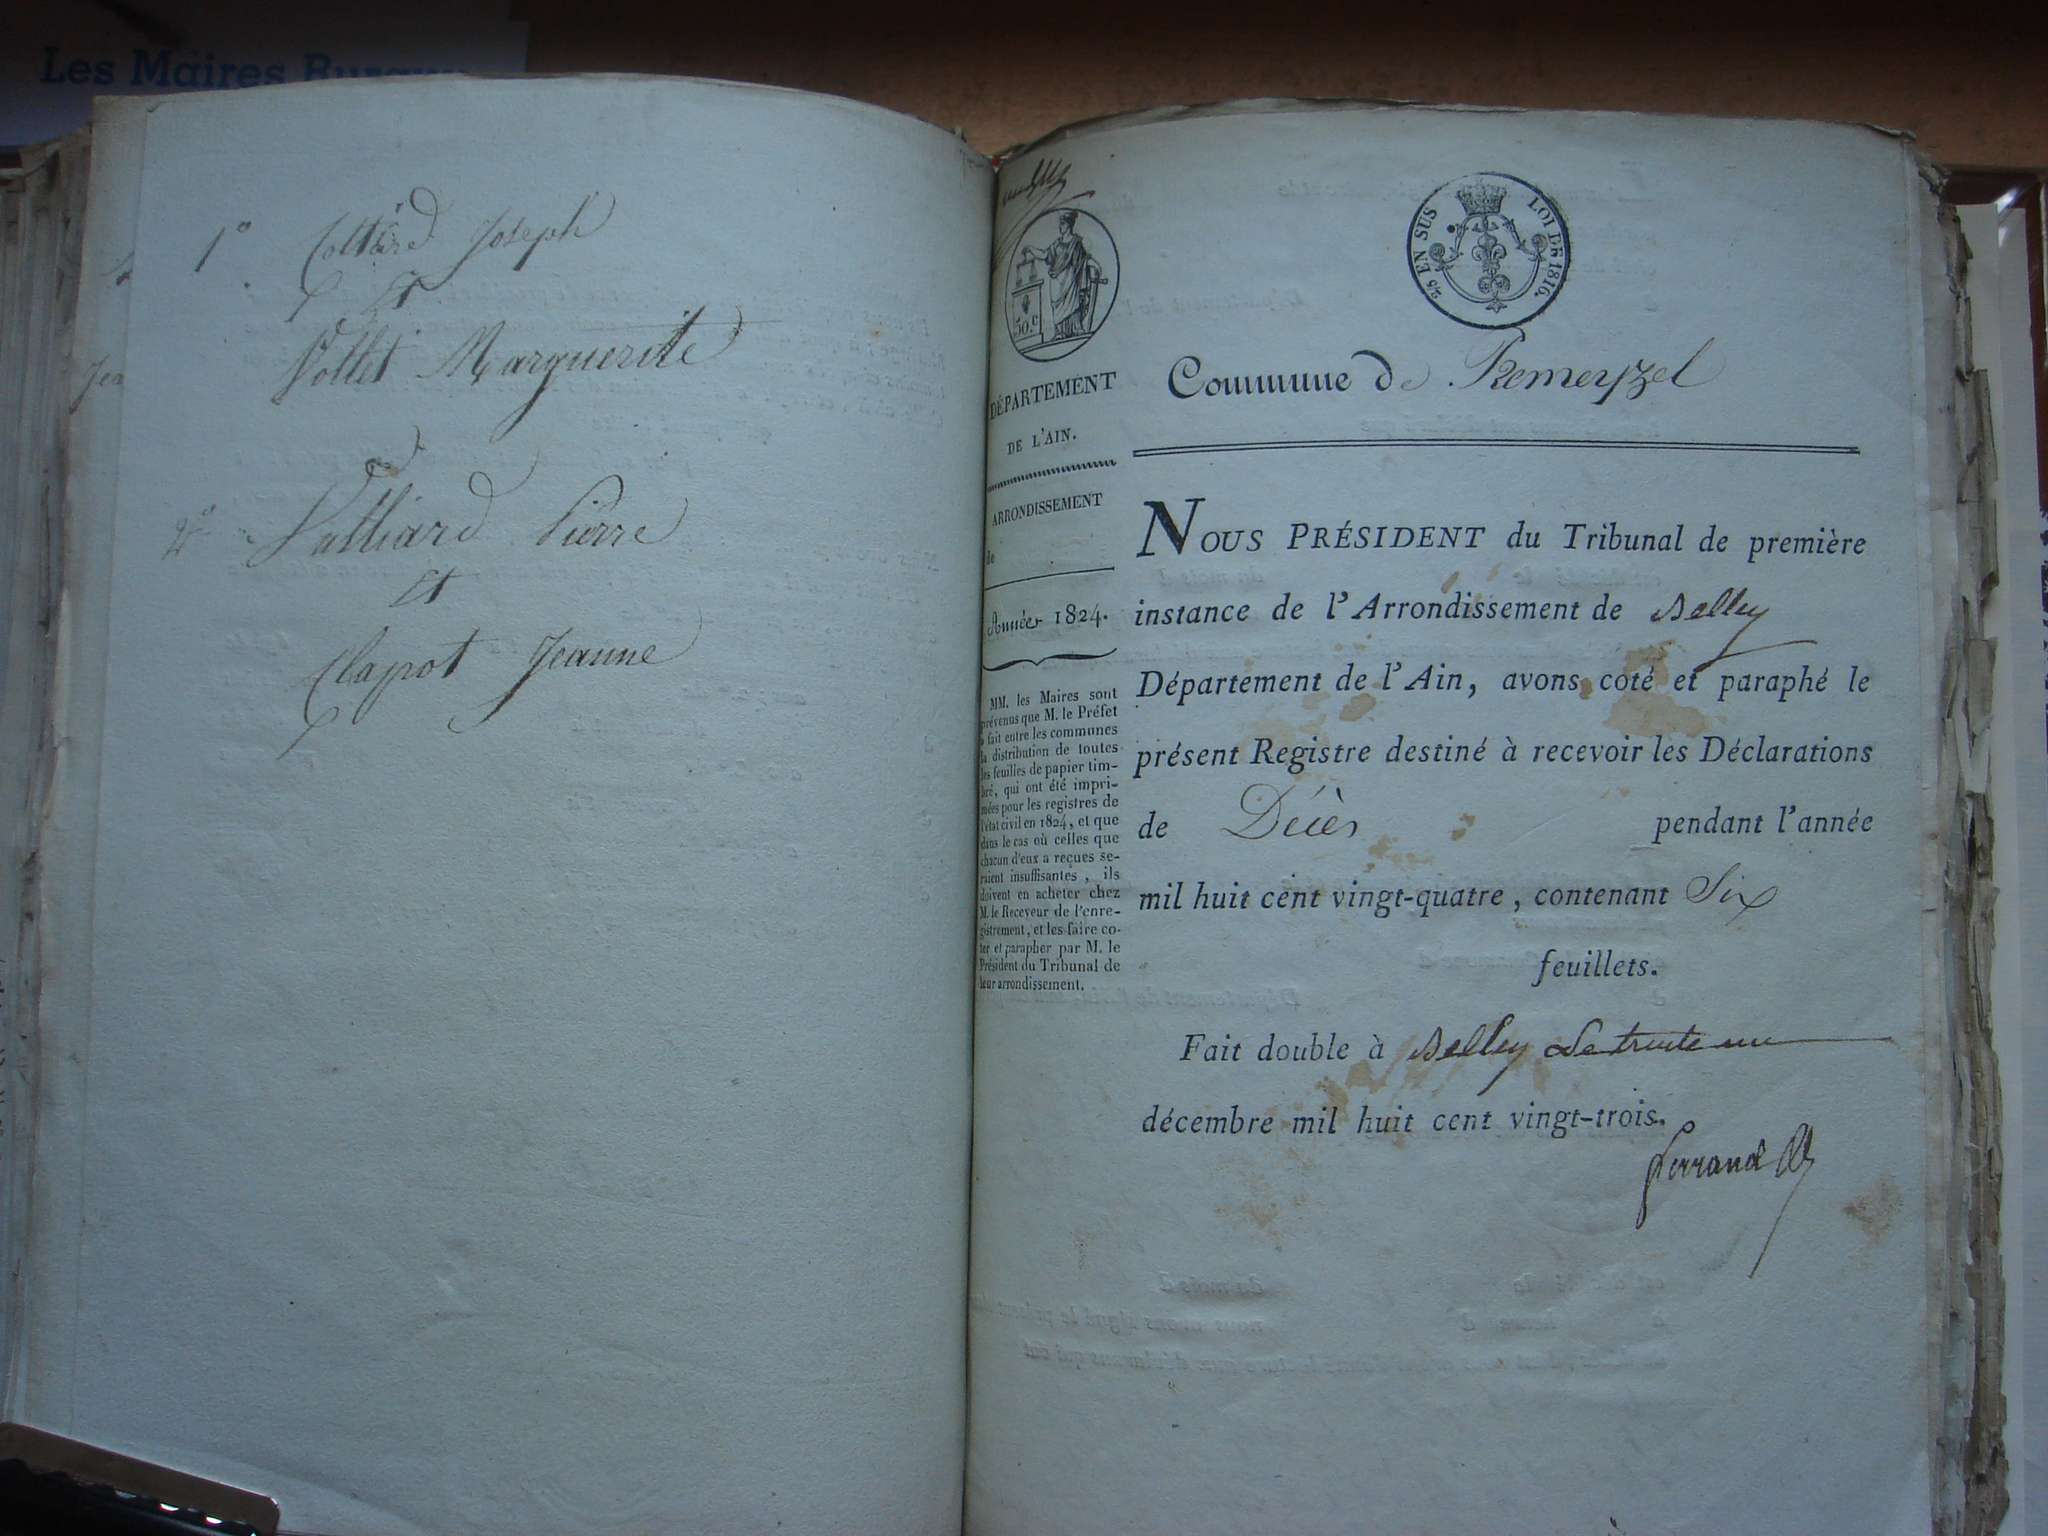 Les Maires Ruraux
1° Coltard Joseph
Et
Vollet Marguerite
2° Vulliard Pierre
Et
Clapot Jeanne
Jea
50.c
25 EN SUS LOI DE 1816.
DÉPARTEMENT
DE L'AIN.
ARRONDISSEMENT
de
Année 1824.
MM. les Maires sont
prévenus que M. le Préfet
a fait entre les communes
la distribution de toutes
les feuilles de papier tim-
bré, qui ont été impri-
mées pour les registres de
l'état civil en 1824, et que
dans le cas où celles que
chacun d'eux a reçues se-
raient insuffisantes, ils
doivent en acheter chez
M. le Receveur de l'enre-
gistrement, et les faire co-
ter et parapher par M. le
Président du Tribunal de
leur arrondissement.
Commune de Premeyzel
NOUS PRÉSIDENT du Tribunal de première
instance de l'Arrondissement de Belley
Département de l'Ain, avons coté et paraphé le
présent Registre destiné à recevoir les Déclarations
de Décès pendant l'année
mil huit cent vingt-quatre, contenant Six
feuillets.
Fait double à Belley Le trente un
décembre mil huit cent vingt-trois.
Ferrand